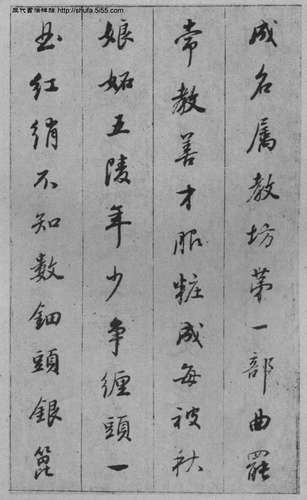 历代书法碑帖 http://shufa.5i55.com
成名属教坊第一部曲罢
常教善才服粧成每被秋
娘妬五陵年少争缠頭一
曲红绡不知数鈿頭銀篦